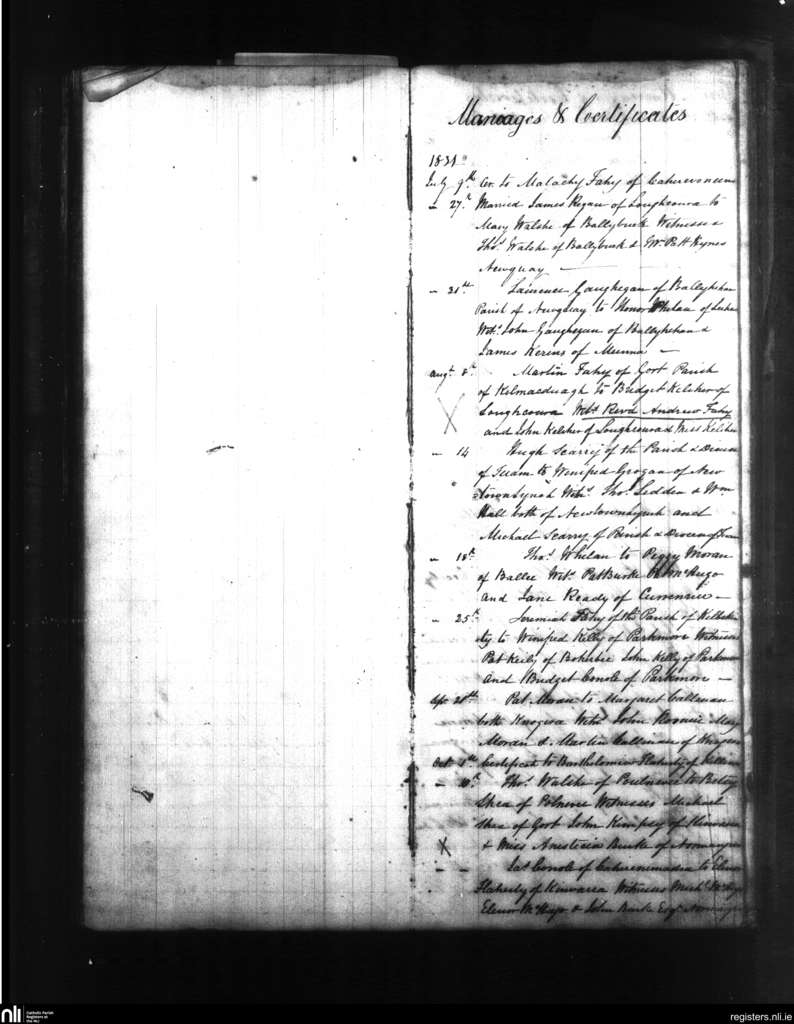 Marriages & Certificates
1831
July 9th Cer. to Malachy Fahy of
– 27th Married James Regan of Loughcurra to
Mary Walshe of Ballybuck Witnesses
Thos Walshe of Ballybuck & Patt Hynes
Newquay —
– 31st Laurence Gaughegan of
Parish of Newquay to Honor Whelan of
Wits. John Gaughegan of &
James Kerins of Munna —
Augt 8th Martin Fahy of Gort Parish
of Kilmacduagh to Bridget Kelcher of
Loughcurra Wits Revd Andrew Fahy
and John Kelcher of Loughcurra & Miss Kelcher
– 14 Hugh Scarry of the Parish & Diocese
of Tuam to Winifred Grogan of New
town Lynch Wits. Thos. Ledden & Wm
Hall both of Newtownlynch and
Michael Scarry of Parish & Diocese of Tuam
– 18th Thos. Whelan to Peggy Moran
of Ballee Wits. Pat Burke McHugo
and Jane Ready of Currenrue —
– 25th Jeremiah Fahy of the Parish of
ty to Winifred Kelly of Parkmore Witnesses
Pat Keily of John Kelly of Parkmore
and Bridget Conole of Parkmore —
28th Pat Moran to Margaret Callinan
both Wits. John Mary
Moran & Martin Callinan of
Oct 1st Certificate to Bartholomew Flaherty of
– 10th Thos. Walshe of to Betsy
Shea of Witnesses Michael
Shea of Gort John Kimpsey of Kinvarra
X & Miss Anesticia Burke of
– – Pat Conole of to Elenor
Flaherty of Kinvarra Witness Michl.
Elenor McHugo & John Burke Esqr.
nli
Catholic Parish
Registers at
the NLI
registers.nli.ie